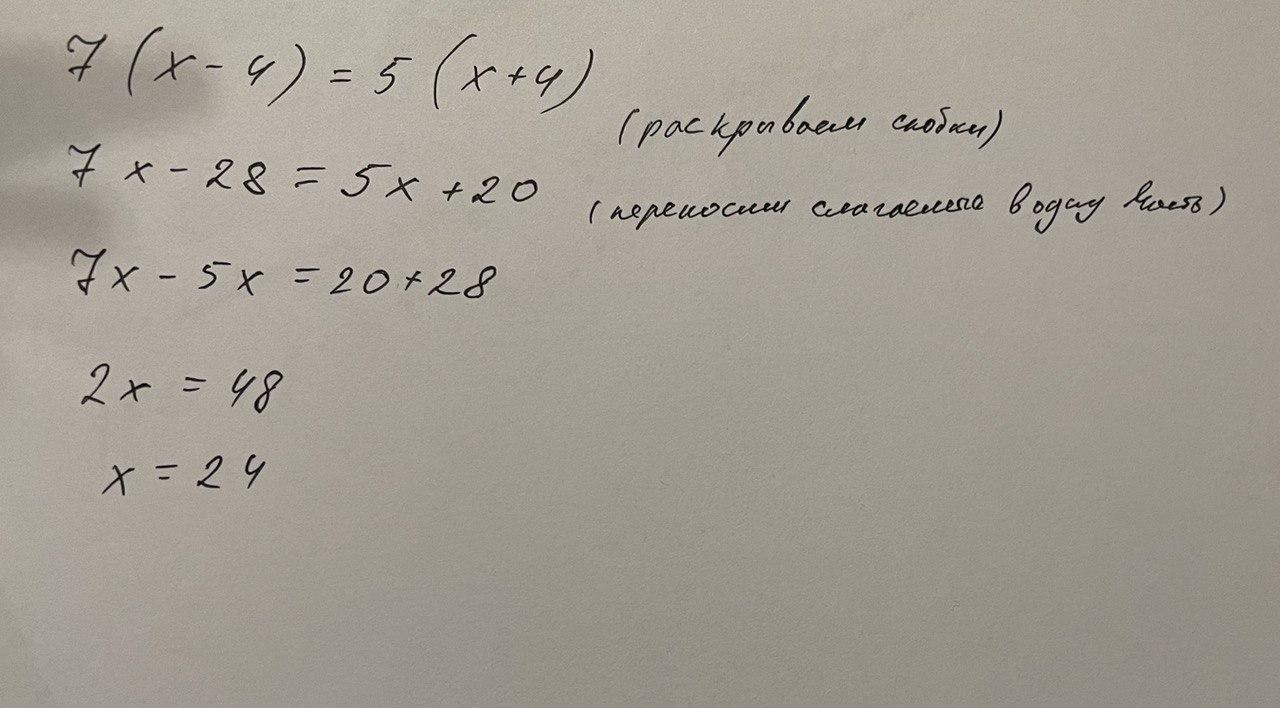 7 (x - 4) = 5 (x + 4)
(раскрываем скобки)
7 x - 28 = 5x + 20
(переносим слагаемые в одну часть)
7x - 5x = 20 + 28
2x = 48
x = 24